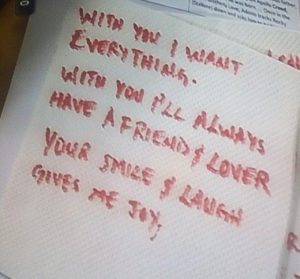 WITH YOU I WANT
EVERYTHING.
WITH YOU I'LL ALWAYS
HAVE A FRIEND & LOVER
YOUR SMILE & LAUGH
GIVES ME JOY,